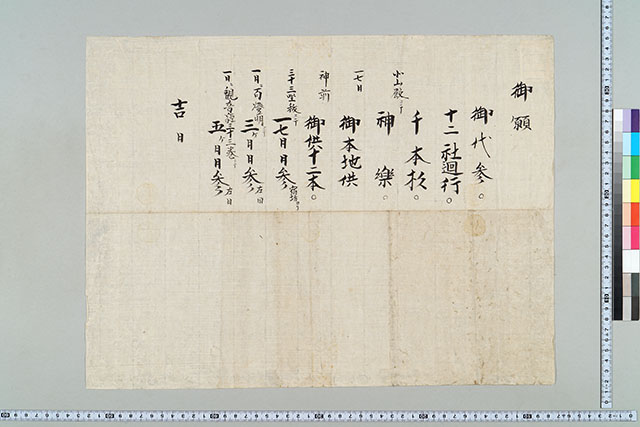 御願
御代参。
十二社廻行。
千本杉。
小山殿ニテ
神楽。
一七日
御本地供
神前
御供十二本。
三十三
一七日月参
一日ニ百燈明
三ヶ月月参 左日
一日ニ観音経三十三巻
五ヶ月月参 左日
吉日